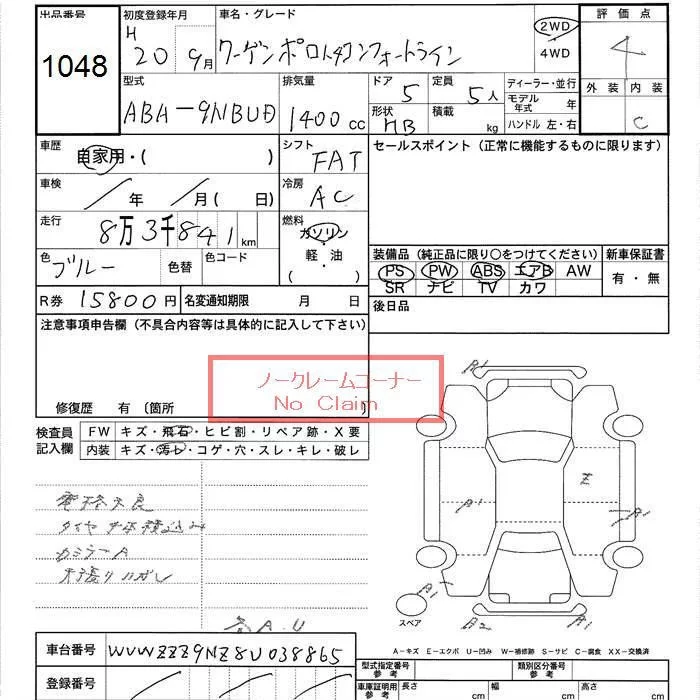 出品番号
1048
初度登録年月
H
20 9月
車名・グレード
ワーゲンポロ1.4コンフォートライン
2WD
4WD
評価点
4
外装 内装
C
型式
ABA-9NBUD
排気量
1400 cc
ドア 5
形状 HB
定員 5人
積載 kg
ディーラー・並行
モデル年式 年
ハンドル 左・右
車歴
自家用・( )
シフト
FAT
セールスポイント(正常に機能するものに限ります)
車検
/年 /月( 日)
冷房
AC
走行
8万3千841km
燃料
ガソリン
軽・油
( )
色 ブルー
色替
色コード
装備品(純正品に限り○をつけてください)
PS PW ABS エアB AW
SR ナビ TV カワ
新車保証書
有・無
R券 15800円
名変通知期限 月 日
後日品
注意事項申告欄(不具合内容等は具体的に記入して下さい)
ノークレームコーナー
No Claim
修復歴 有〔箇所 〕
検査員記入欄
FW キズ・飛石・ヒビ割・リペア跡・X要
内装 キズ・汚レ・コゲ・穴・スレ・キレ・破レ
A1
E
A1
A1
A1
A1
A2
A1
スペア
A-キズ E-エクボ U-凹み W-補修跡 S-サビ C-腐食 XX-交換済
A.U
車台番号 WVWZZZ9NZ8U038865
登録番号
型式指定番号
参考
類別区分番号
参考
車庫証明用
参考
長さ cm
幅 cm
高さ cm